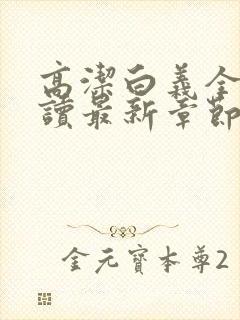 高潔白義全
讀最新章節
金元寶本尊2